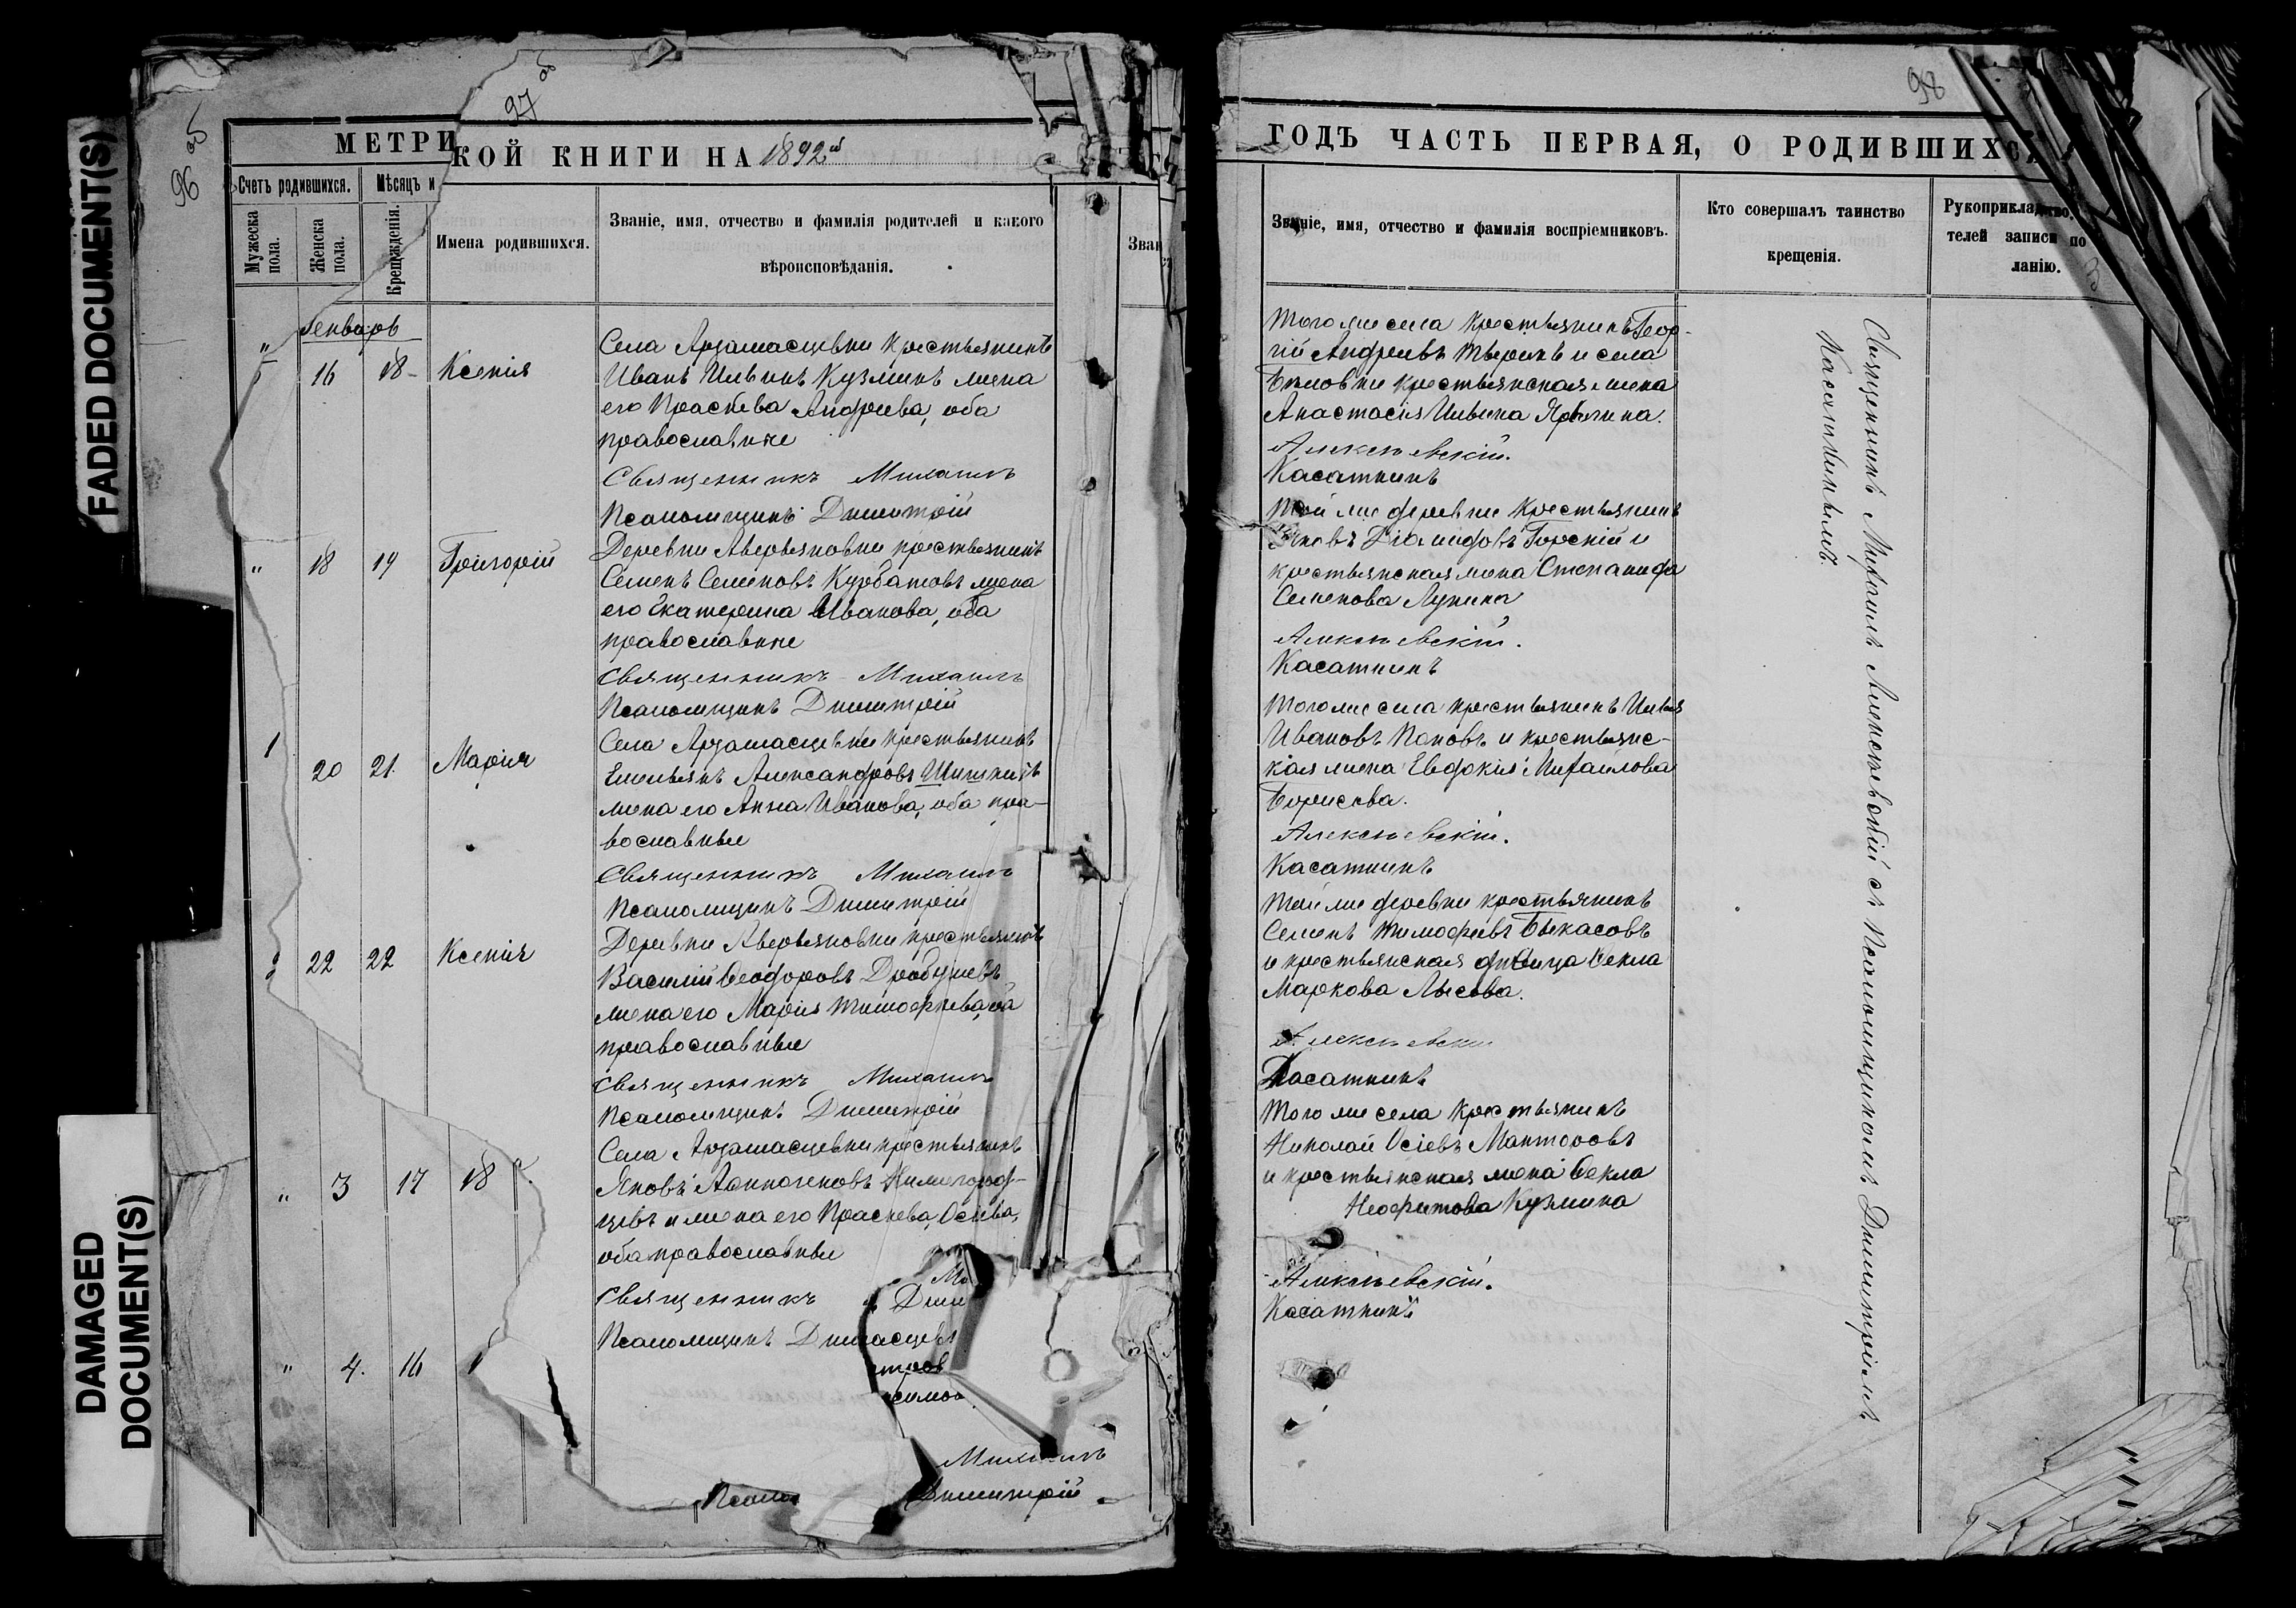 FADED DOCUMENT(S)
DAMAGED DOCUMENT(S)
96 об
97 об
МЕТРИ
КОЙ КНИГИ НА 1892 й
Счетъ родившихся.
Мѣсяцъ и
Мужеска пола.
Женска пола.
Крещенія.
Имена родившихся.
Званіе, имя, отчество и фамилія родителей и какого
вѣроисповѣданія.
Зван
Генварь
" 16 18 Ксенія
Села Арзамасцевки крестьянинъ
Иванъ Ильинъ Кузминъ жена
его Праскева Андреева, оба
православные
Священникъ Михаилъ
Псаломщикъ Димитрій
" 18 19 Григорій
Деревни Аверьяновки крестьянинъ
Семенъ Семеновъ Курбатовъ жена
его Екатерина Иванова, оба
православные
Священникъ Михаилъ
Псаломщикъ Димитрій
1 20 21. Марія
Села Арзамасцевки крестьянинъ
Емельянъ Александровъ Шишкинъ
жена его Анна Иванова, оба пра-
вославные
Священникъ Михаилъ
Псаломщикъ Димитрій
22 22 Ксенія
Деревни Аверьяновки крестьянинъ
Василій Ѳеодоровъ
жена его Марія Тимофеева, оба
православные
Священникъ Михаилъ
Псаломщикъ Димитрій
" 3 17 18
Села Арзамасцевки крестьянинъ
Яковъ
жена его Праскева Осіева,
оба православные
Священникъ
Дими
Псаломщикъ
" 4. 16
Михаилъ
Псало
Димитрій
98
ГОДЪ ЧАСТЬ ПЕРВАЯ, О РОДИВШИХСЯ
Званіе, имя, отчество и фамилія воспріемниковъ.
Кто совершалъ таинство
крещенія.
Рукоприкладство,
телей записи по
ланію.
Того же села крестьянинъ Геор-
гій Андреевъ Тыринъ и села
крестьянская жена
Анастасія Ильина
Алексѣевскій.
Касаткинъ
Той же деревни крестьянинъ
Яковъ Діомидовъ Горскій и
крестьянская жена Степанида
Семенова Лунина
Алексѣевскій.
Касаткинъ
Того же села крестьянинъ Илья
Ивановъ Поповъ и крестьянс-
кая жена Евдокія Михаилова
Борисова.
Алексѣевскій.
Касаткинъ
Той же деревни крестьянинъ
Семенъ Тимофеевъ Бекасовъ
и крестьянская дѣвица Ѳекла
Маркова Лысова.
Алексѣевскій
Касаткинъ
Того же села крестьянинъ
Николай Осіевъ Манторовъ
и крестьянская жена Ѳекла
Неофитова Кузмина
Алексѣевскій.
Касаткинъ
Священникъ Михаилъ Алексѣевскій съ Псаломщикомъ Димитріемъ
Касаткинымъ.